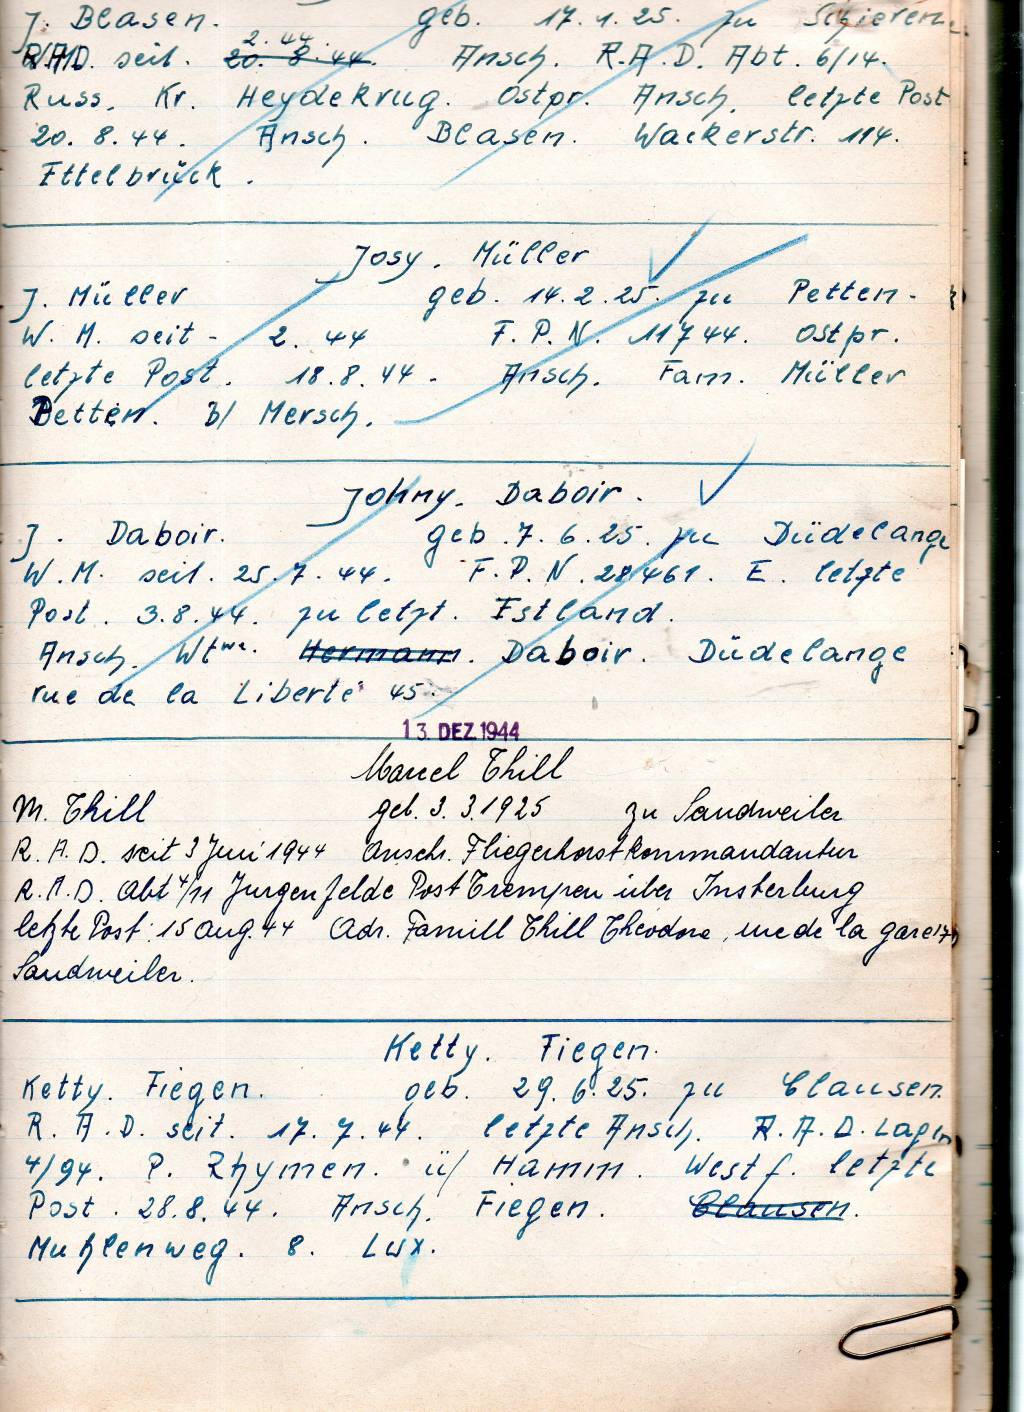 J. Blasen. geb. 17.1.25. zu Schieren.
2.44.
R.A.D. seit. 20. 8. 44. Ansch. R.A.D. Abt. 6/14.
Russ. Kr. Heydekrug. Ostpr. Ansch. letzte Post
20. 8. 44. Ansch. Blasen. Wackerstr. 114.
Ettelbrück.
Josy. Müller
J. Müller geb. 14.2.25. zu Petten.
W. M. seit - 2. 44 F.P.N. 11744. Ostpr.
letzte Post. 18.8.44. Ansch. Fam. Müller
Petten. B/ Mersch.
Johny. Daboir.
J. Daboir. geb. 7.6.25. zu Düdelange
W.M. seit. 25.7.44. F.P.N. 28461. E. letzte
Post. 3.8.44. zu letzt. Estland.
Ansch. Wtwe. Hermann. Daboir. Düdelange
rue de la Liberté 45.
13. DEZ. 1944
Marcel Thill
M. Thill geb. 3.3.1925 zu Sandweiler
R.A.D. seit 3 Juni 1944 Anschr. Fliegerhorstkommandantur
R.A.D. Abt 4/11 Jurgenfelde Post Trempen über Insterburg
letzte Post: 15 Aug. 44 Adr. Famill Thill Theodore, rue de la gare 17
Sandweiler.
Ketty. Fiegen.
Ketty. Fiegen. geb. 29.6.25. zu Clausen.
R.A.D. seit. 17.7.44. letzte Ansch. R.A.D. Lager
4/94. P. Rhymen. ü/ Hamm. Westf. letzte
Post. 28.8.44. Ansch. Fiegen. Clausen.
Muhlenweg. 8. Lux.